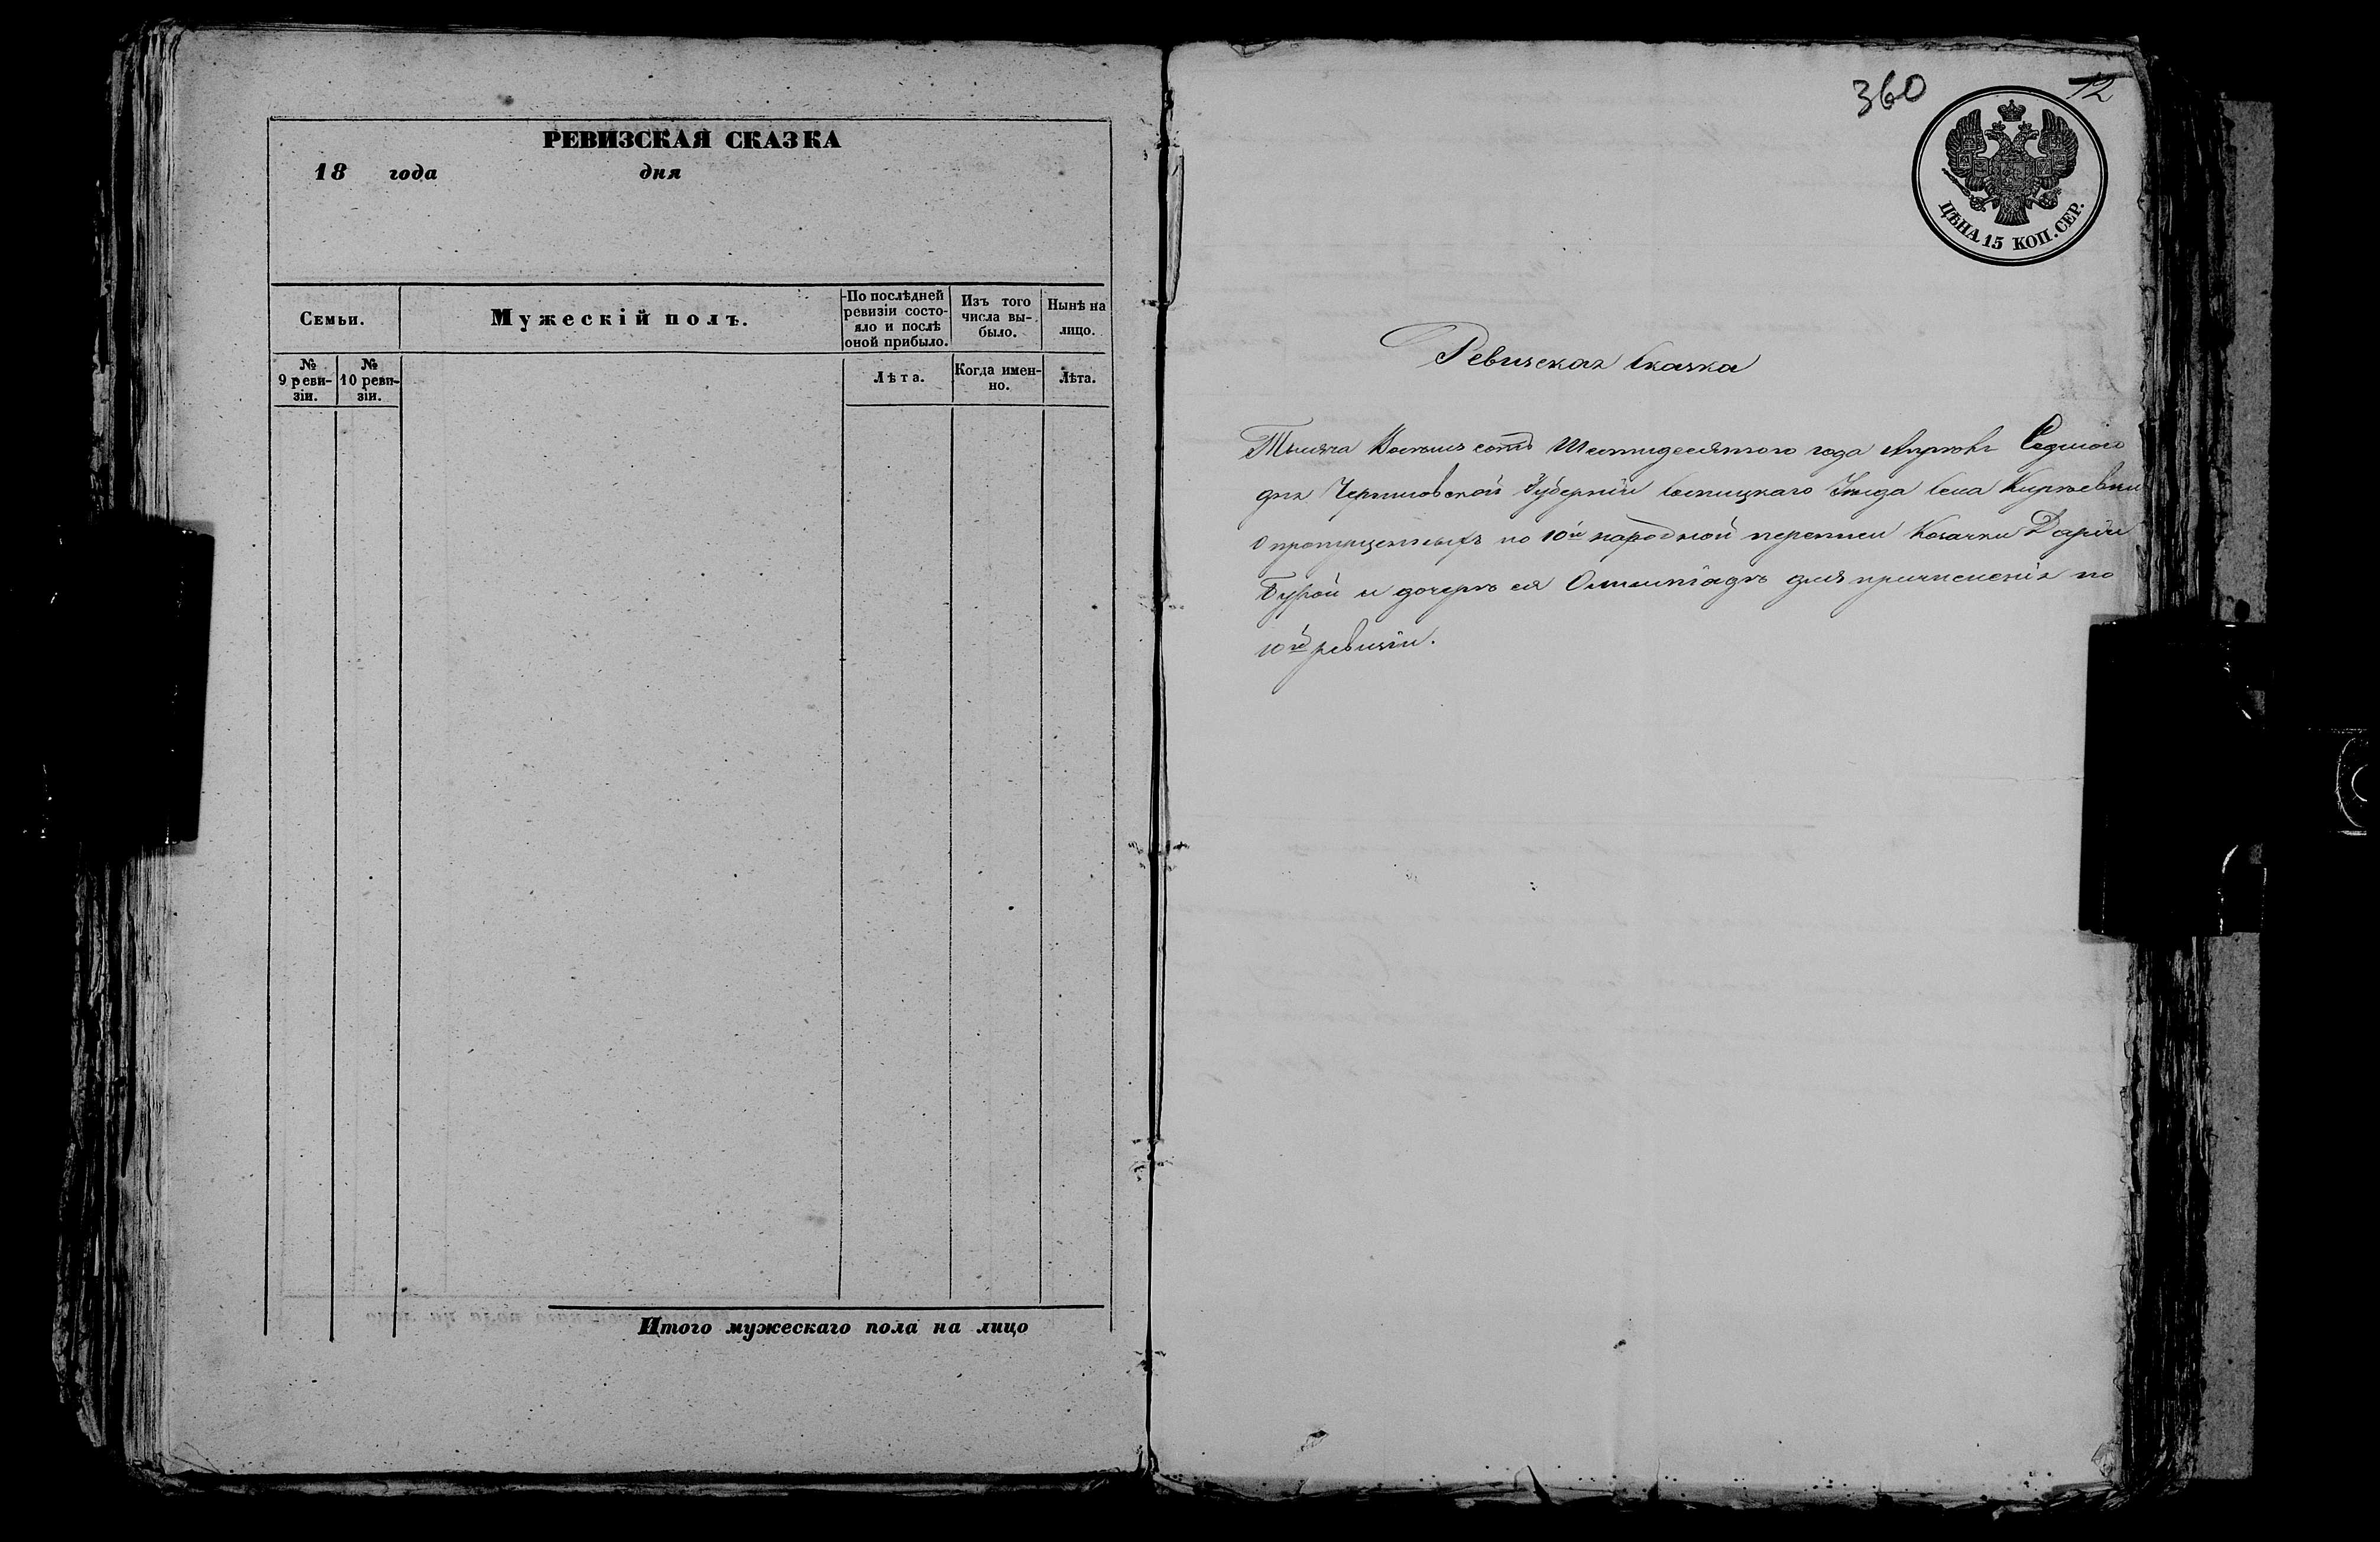 РЕВИЗСКАЯ СКАЗКА
18 года дня
Семьи.
Мужескій полъ.
По послѣдней
ревизіи состо-
яло и послѣ
оной прибыло.
Изъ того
числа вы-
было.
Нынѣ на
лицо.
№
9 реви-
зіи.
№
10 реви-
зіи.
Лѣта.
Когда имен-
но.
Лѣта.
Итого мужескаго пола на лицо
360
12
ЦѢНА 15 КОП. СЕР.
Ревизская Сказка
Тысяча Восемь сотъ Шестидесятого года Апрѣля Седмого
дня Черниговской Губерніи Сосницкаго Уѣзда Села Кирѣевки
О пропущенныхъ по 10й народной переписи Козачки Даріи
Бурой и дочерѣ ея Олимпіадѣ для причисленія по
10й ревизіи.